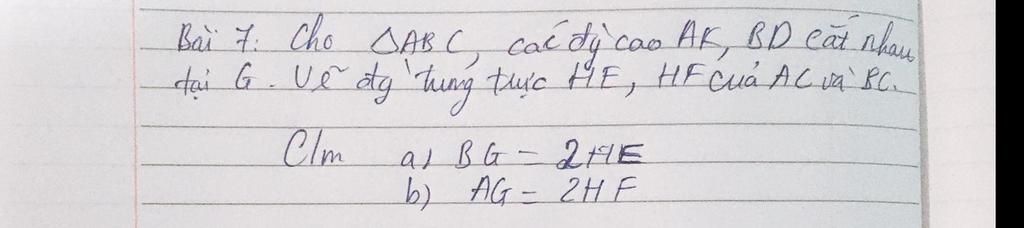 Bài 7: Cho △ABC, các đg` cao AK, BD cắt nhau
tại G. Vẽ đg` trung trực HE, HF của AC và BC.
C/m a) BG = 2HE
b) AG = 2HF